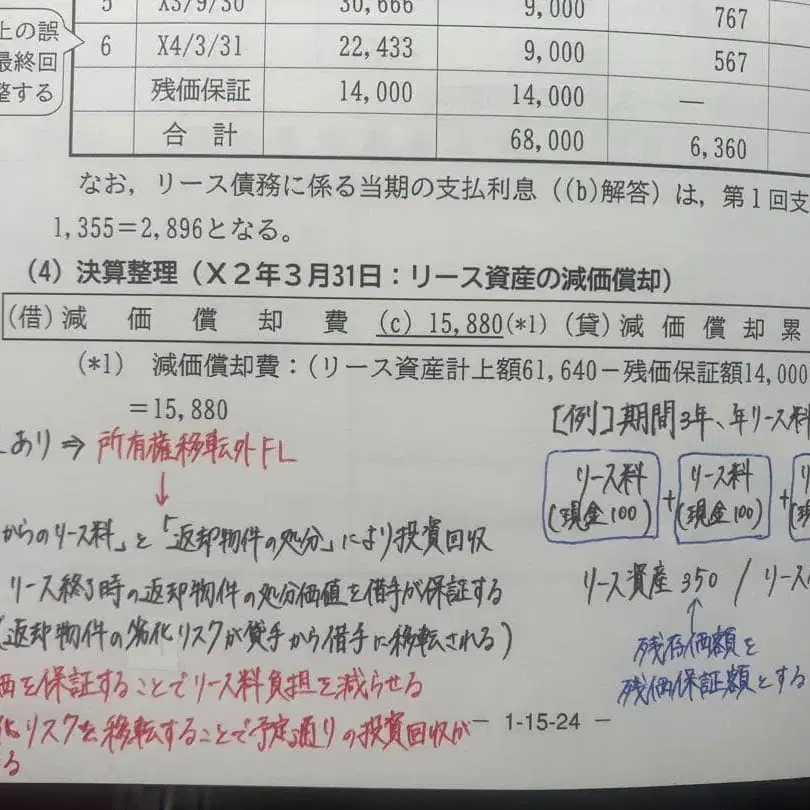 5 X3/9/30 30,666 9,000 767
上の誤
最終回
整する
6 X4/3/31 22,433 9,000 567
残価保証 14,000 14,000 —
合 計 68,000 6,360
なお，リース債務に係る当期の支払利息（(b)解答）は，第１回支
1,355＝2,896となる。
(4) 決算整理（Ｘ２年３月31日：リース資産の減価償却）
(借) 減 価 償 却 費 (c) 15,880(*1) (貸) 減 価 償 却 累
(*1) 減価償却費：(リース資産計上額61,640－残価保証額14,000
＝15,880
あり ⇒ 所有権移転外FL
↓
[例] 期間3年、年リース料
リース料 (現金100) + リース料 (現金100) +
からのリース料」と「返却物件の処分」により投資回収
リース終了時の返却物件の処分価値を借手が保証する
(返却物件の劣化リスクが貸手から借手に移転される)
リース資産 350 / リース
↑
残存価額を
残価保証額とする
を保証することでリース料負担を減らせる
化リスクを移転することで予定通りの投資回収が
る
－ 1-15-24 －